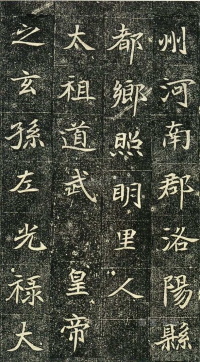 州河南郡洛陽縣
都鄉照明里人
太祖道武皇帝
之玄孫左光祿大